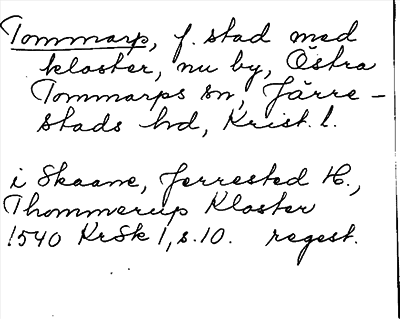 Tommarp, f. stad med
kloster, nu by, Östra
Tommarps sn, Järre-
stads hd, Krist. l.
i Skaane, Jerrested H.,
Thommerup Kloster
1540 KrSk 1, s. 10. regest.